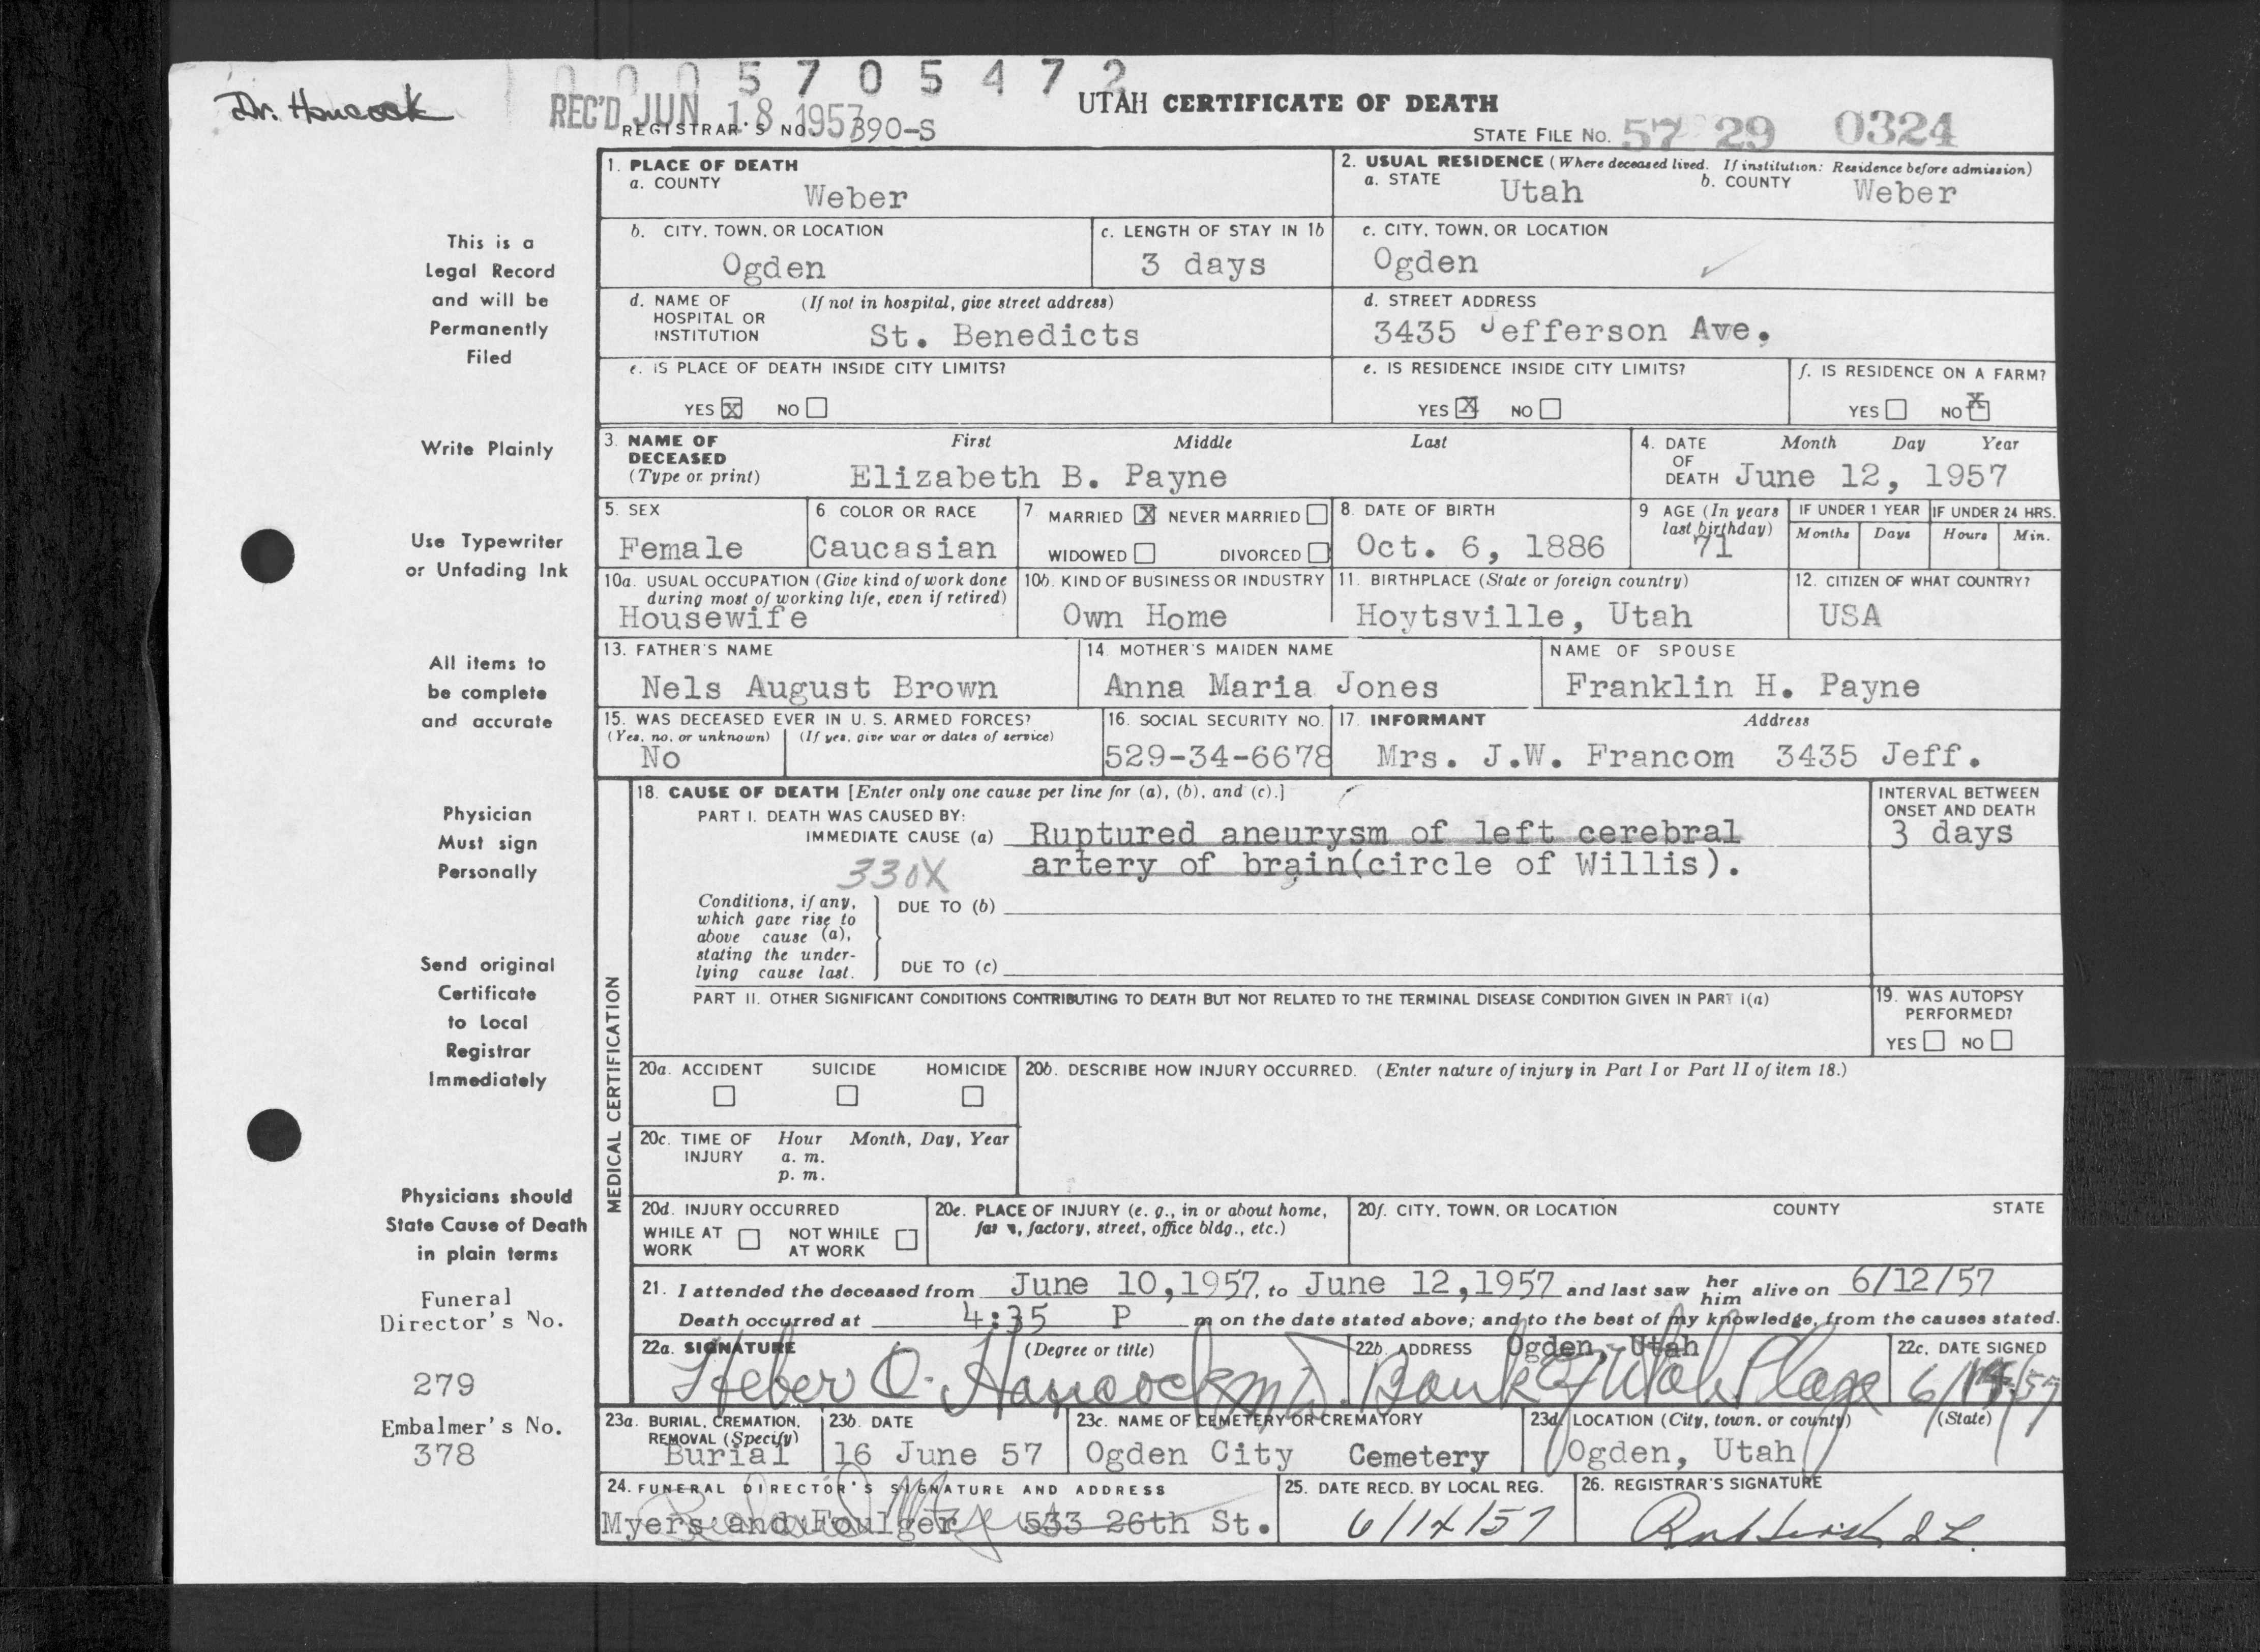 0005705472
Dr. Hancock
REC'D JUN 18 1957
UTAH CERTIFICATE OF DEATH
REGISTRAR'S NO. 390-S
STATE FILE NO. 57 29 0324
This is a
Legal Record
and will be
Permanently
Filed
Write Plainly
Use Typewriter
or Unfading Ink
All items to
be complete
and accurate
Physician
Must sign
Personally
Send original
Certificate
to Local
Registrar
Immediately
Physicians should
State Cause of Death
in plain terms
Funeral
Director's No.
279
Embalmer's No.
378
1. PLACE OF DEATH
a. COUNTY
Weber
2. USUAL RESIDENCE (Where deceased lived. If institution: Residence before admission)
a. STATE Utah b. COUNTY Weber
b. CITY, TOWN, OR LOCATION
Ogden
c. LENGTH OF STAY IN 1b
3 days
c. CITY, TOWN, OR LOCATION
Ogden
d. NAME OF (If not in hospital, give street address)
HOSPITAL OR
INSTITUTION St. Benedicts
d. STREET ADDRESS
3435 Jefferson Ave.
e. IS PLACE OF DEATH INSIDE CITY LIMITS?
YES X NO
e. IS RESIDENCE INSIDE CITY LIMITS?
YES X NO
f. IS RESIDENCE ON A FARM?
YES NO X
3. NAME OF DECEASED (Type or print)
First Middle Last
Elizabeth B. Payne
4. DATE OF DEATH
Month Day Year
June 12, 1957
5. SEX
Female
6. COLOR OR RACE
Caucasian
7 MARRIED X NEVER MARRIED
WIDOWED DIVORCED
8. DATE OF BIRTH
Oct. 6, 1886
9 AGE (In years last birthday)
71
IF UNDER 1 YEAR
Months Days
IF UNDER 24 HRS.
Hours Min.
10a. USUAL OCCUPATION (Give kind of work done
during most of working life, even if retired)
Housewife
10b. KIND OF BUSINESS OR INDUSTRY
Own Home
11. BIRTHPLACE (State or foreign country)
Hoytsville, Utah
12. CITIZEN OF WHAT COUNTRY?
USA
13. FATHER'S NAME
Nels August Brown
14. MOTHER'S MAIDEN NAME
Anna Maria Jones
NAME OF SPOUSE
Franklin H. Payne
15. WAS DECEASED EVER IN U. S. ARMED FORCES?
(Yes, no, or unknown) (If yes, give war or dates of service)
No
16. SOCIAL SECURITY NO.
529-34-6678
17. INFORMANT Address
Mrs. J.W. Francom 3435 Jeff.
MEDICAL CERTIFICATION
18. CAUSE OF DEATH [Enter only one cause per line for (a), (b), and (c).]
PART I. DEATH WAS CAUSED BY:
IMMEDIATE CAUSE (a) Ruptured aneurysm of left cerebral
artery of brain(circle of Willis).
330X
INTERVAL BETWEEN
ONSET AND DEATH
3 days
Conditions, if any,
which gave rise to
above cause (a),
stating the under-
lying cause last.
DUE TO (b)
DUE TO (c)
PART II. OTHER SIGNIFICANT CONDITIONS CONTRIBUTING TO DEATH BUT NOT RELATED TO THE TERMINAL DISEASE CONDITION GIVEN IN PART I(a)
19. WAS AUTOPSY
PERFORMED?
YES NO
20a. ACCIDENT SUICIDE HOMICIDE
20b. DESCRIBE HOW INJURY OCCURRED. (Enter nature of injury in Part I or Part II of item 18.)
20c. TIME OF Hour Month, Day, Year
INJURY a. m.
p. m.
20d. INJURY OCCURRED
WHILE AT WORK NOT WHILE AT WORK
20e. PLACE OF INJURY (e. g., in or about home,
farm, factory, street, office bldg., etc.)
20f. CITY, TOWN, OR LOCATION COUNTY STATE
21. I attended the deceased from June 10,1957, to June 12,1957 and last saw her him alive on 6/12/57
Death occurred at 4:35 P m on the date stated above; and to the best of my knowledge, from the causes stated.
22a. SIGNATURE (Degree or title)
Heber O. Hancock M.D.
22b. ADDRESS Ogden, Utah
Bank of Utah Plaza
22c. DATE SIGNED
6/14/57
23a. BURIAL, CREMATION,
REMOVAL (Specify)
Burial
23b. DATE
16 June 57
23c. NAME OF CEMETERY OR CREMATORY
Ogden City Cemetery
23d. LOCATION (City, town, or county) (State)
Ogden, Utah
24. FUNERAL DIRECTOR'S SIGNATURE AND ADDRESS
Myers and Foulger 533 26th St.
25. DATE RECD. BY LOCAL REG.
6/14/57
26. REGISTRAR'S SIGNATURE